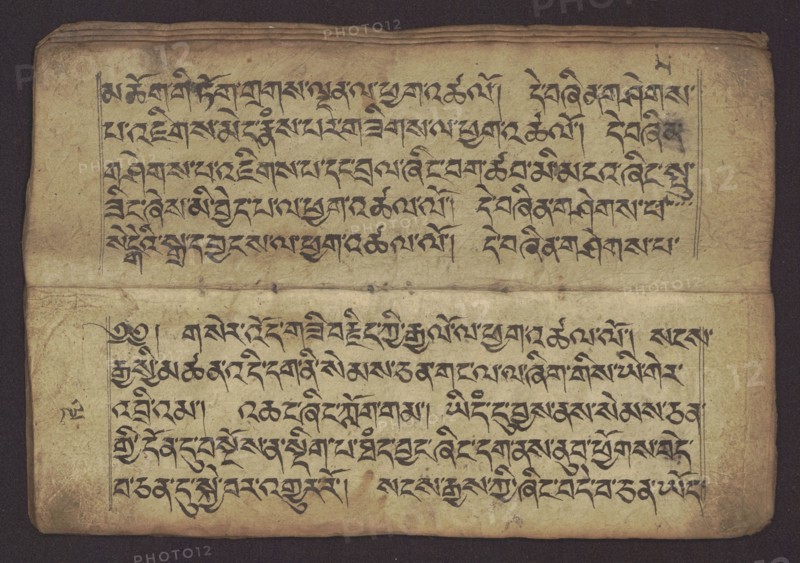 མ་ཆོག་གི་ཏོག་གྲགས་ལྡན་ལ་ཕྱག་འཚལོ། དེ་བཞིན་གཤེགས་
པ་འཇིགས་མེད་རྣམས་པར་གཟིགས་ལ་ཕྱག་འཚལོ། དེ་བཞིན་
གཤེགས་པ་འཇིགས་པ་དང་བྲལ་ཞིང་བག་ཚབ་མི་མངའ་ཞིང་སྤུ་
ཟིང་ཞེས་མི་བྱེད་པ་ལ་ཕྱག་འཚལ་ལོ། དེ་བཞིན་གཤེགས་པ་
སེངྒེའི་སྒྲ་དབྱངས་ལ་ཕྱག་འཚལ་ལོ། དེ་བཞིན་གཤེགས་པ་
༄༅། གསེར་འོད་གཟི་བརྗིད་ཀྱི་རྒྱལོ་ལ་ཕྱག་འཚལ་ལོ། སངས་
རྒྱསྱི་མཚན་འདི་དག་ནི་སེམས་ཅན་གང་ལ་ལ་ཞིག་གིས་ཡི་གེར་
འབྲི་འམ། འཆང་ཞིང་ཀློག་གམ། ཡིདཾ་དུ་བྱས་ནས་སེམས་ཅན་
གྱི་དོན་དུ་བསྔོས་ན་སྡིག་པ་ཐཾད་བྱང་ཞིང་དག་ནས་ནུབ་ཕྱོགས་བདེ་
བ་ཅན་དུ་སྐྱེ་བར་འགྱུརོ། སངས་རྒྱས་ཀྱི་ཞིང་བདེ་བ་ཅན་ཡོང་
PHOTO12